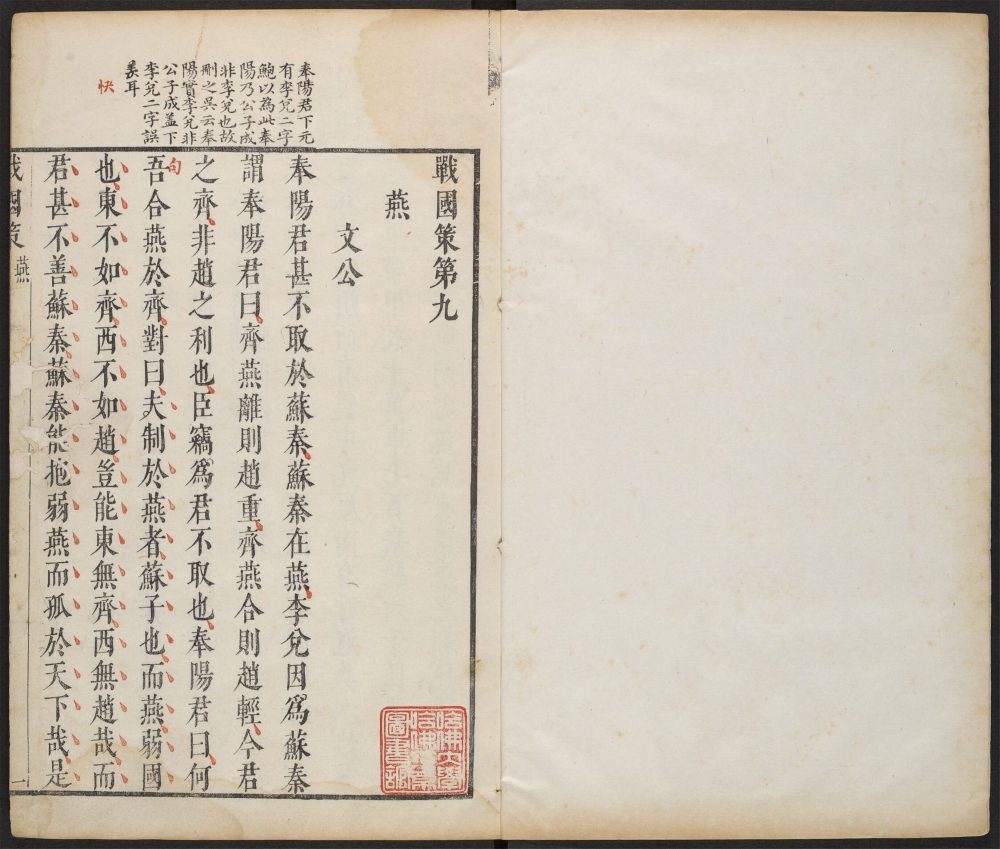 戰國策第九
燕
文公
奉陽君甚不取於蘇秦蘇秦在燕李兌因爲蘇秦
謂奉陽君曰齊燕離則趙重齊燕合則趙輕今君
之齊非趙之利也臣竊爲君不取也奉陽君曰何
吾合燕於齊對曰夫制於燕者蘇子也而燕弱國
也東不如齊西不如趙豈能東無齊西無趙哉而
君甚不善蘇秦蘇秦能抱弱燕而孤於天下哉是
奉陽君下元
有李兌二字
鮑以為此奉
陽乃公子成
非李兌也故
刪之吳云奉
陽實李兌非
公子成盖下
李兌二字誤
羙耳
快
句
戰國策 燕
一
哈佛大學
哈佛燕京
圖書館